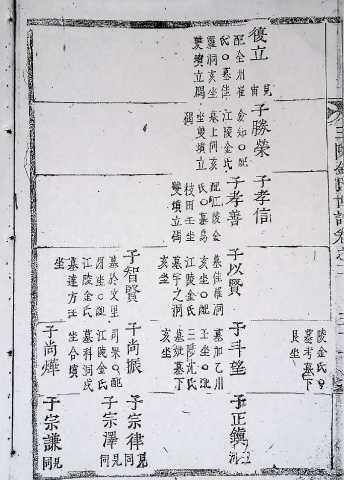 金氏世譜卷之
復立
配全州崔
氏○墓佳
羅洞亥坐
雙墳立碣
子勝榮
僉知○配
江陵金氏
墓上同亥
坐雙墳立
碣
子孝信
子孝善
配江陵金
氏○墓烏
枝田壬坐
雙墳立碣
子以賢
墓佳羅洞
亥坐○配
江陵金氏
墓宇之洞
亥坐
子智賢
墓於文里
酉坐○配
江陵金氏
墓達方壬
坐
陵金氏○
墓考墓下
艮坐
子斗望
墓加乙川
壬坐○配
三陟沈氏
墓妣墓下
亥坐
子尚振
司果○配
江陵金氏
墓科洞戌
坐合墳
子尚燁
子正鎭
子宗律
見同
子宗澤
見同
子宗謙
見同